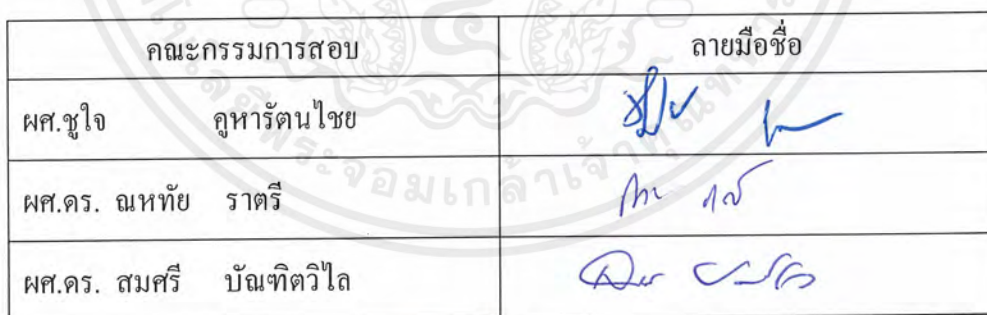 คณะกรรมการสอบ ลายมือชื่อ
ผศ.ชูใจ คูหารัตนไชย
ผศ.ดร. ณหทัย ราตรี
ผศ.ดร. สมศรี บัณฑิตวิไล